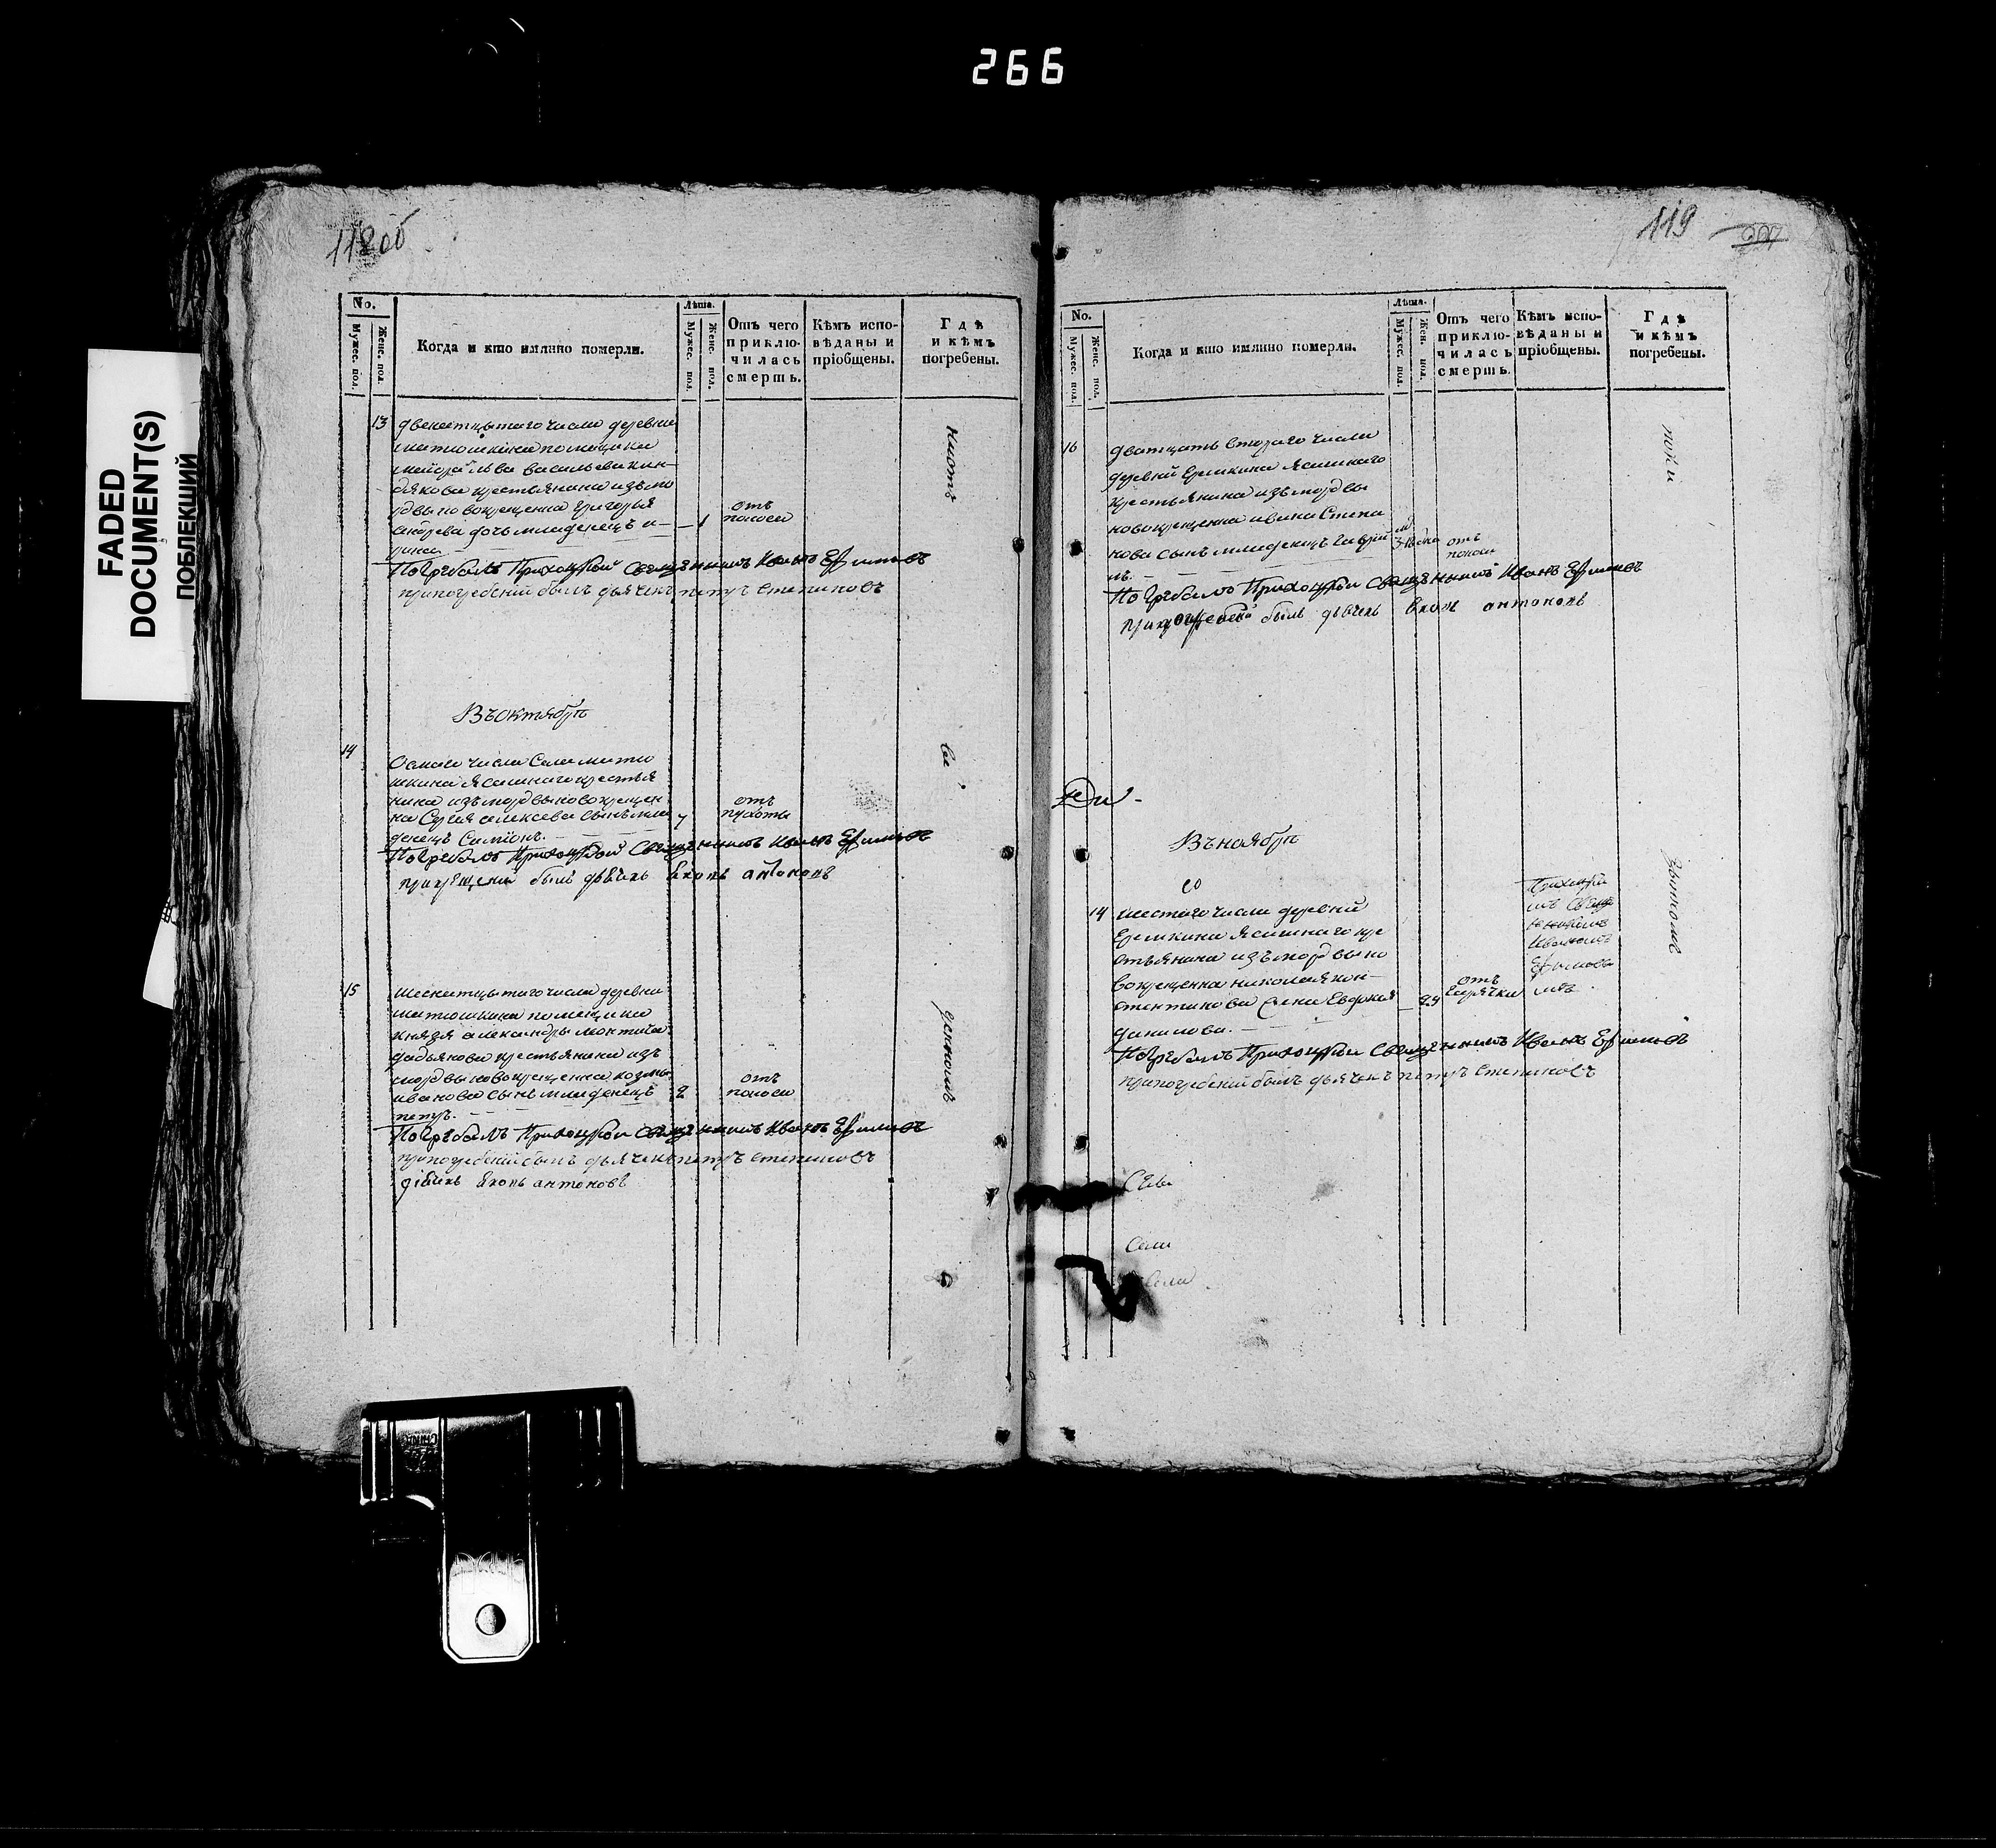 266
FADED
DOCUMENT(S)
ПОБЛЕКШИЙ
118об
No.
Мужес. пол.
Женс. пол.
Когда и кто имянно померли.
Лѣта.
Мужес. пол.
Женс. пол.
Отъ чего
приклю-
чилась
смерть.
Кѣмъ испо-
вѣданы и
пріобщены.
Гдѣ
и кѣмъ
погребены.
13
двенатцатого числа деревни
матюшкина помещика
маиора льва васильева кин-
дякова крестьянина изъ мо
рдвы новокрещенна григорья
андрева дочь младенецъ и-
рина
1
отъ
поноса
Погребалъ Приходской Священникъ Иванъ Ефимовъ
при погребении былъ дьячекъ петръ степановъ
Въ октябрѣ
14
Осмаго числа Села матю
шкина Ясашного крестья
нина изъ мордвы новокрещен
на Сергея алексева сынъ мла
денецъ Симионъ.
7
отъ
Погребалъ Приходской Священникъ Иванъ Ефимовъ
былъ дьячекъ антоновъ
15
шеснатцатого числа деревни
матюшкина помещика
князя александры
дадьянова крестьянина изъ
мордвы новокрещенна козмы
иванова сынъ младенецъ
петръ.
2
отъ
поноса
Погребалъ Приходской Священникъ Иванъ Ефимовъ
при погребении былъ дьячекъ петръ степановъ
антоновъ
119
No.
Мужес. пол.
Женс. пол.
Когда и кто имянно померли.
Лѣта.
Мужес. пол.
Жен. пол.
Отъ чего
приклю-
чилась
смерть.
Кѣмъ испо-
вѣданы и
пріобщены.
Гдѣ
и кѣмъ
погребены.
16
дватцать втораго числа
деревни Еремкина Ясашного
Крестьянина изъ мордвы
новокрещенна ивана Степа
нова сынъ младенецъ гаврии
лъ.
отъ
поноса
Погребалъ Приходской Священникъ Иванъ Ефимовъ
былъ дьячекъ антоновъ
Въ ноябрѣ
14
шестаго числа деревни
Еремкина Ясашного кре
стьянина изъ мордвы но
вокрещенна николая кон-
стентинова жена Евдокия
данилова.
24
отъ
горячки
Приходски
мъ Свяще
нникомъ
Иваномъ
Ефимовы
мъ.
Погребалъ Приходской Священникъ Иванъ Ефимовъ
при погребении былъ дьячекъ петръ степановъ
Села